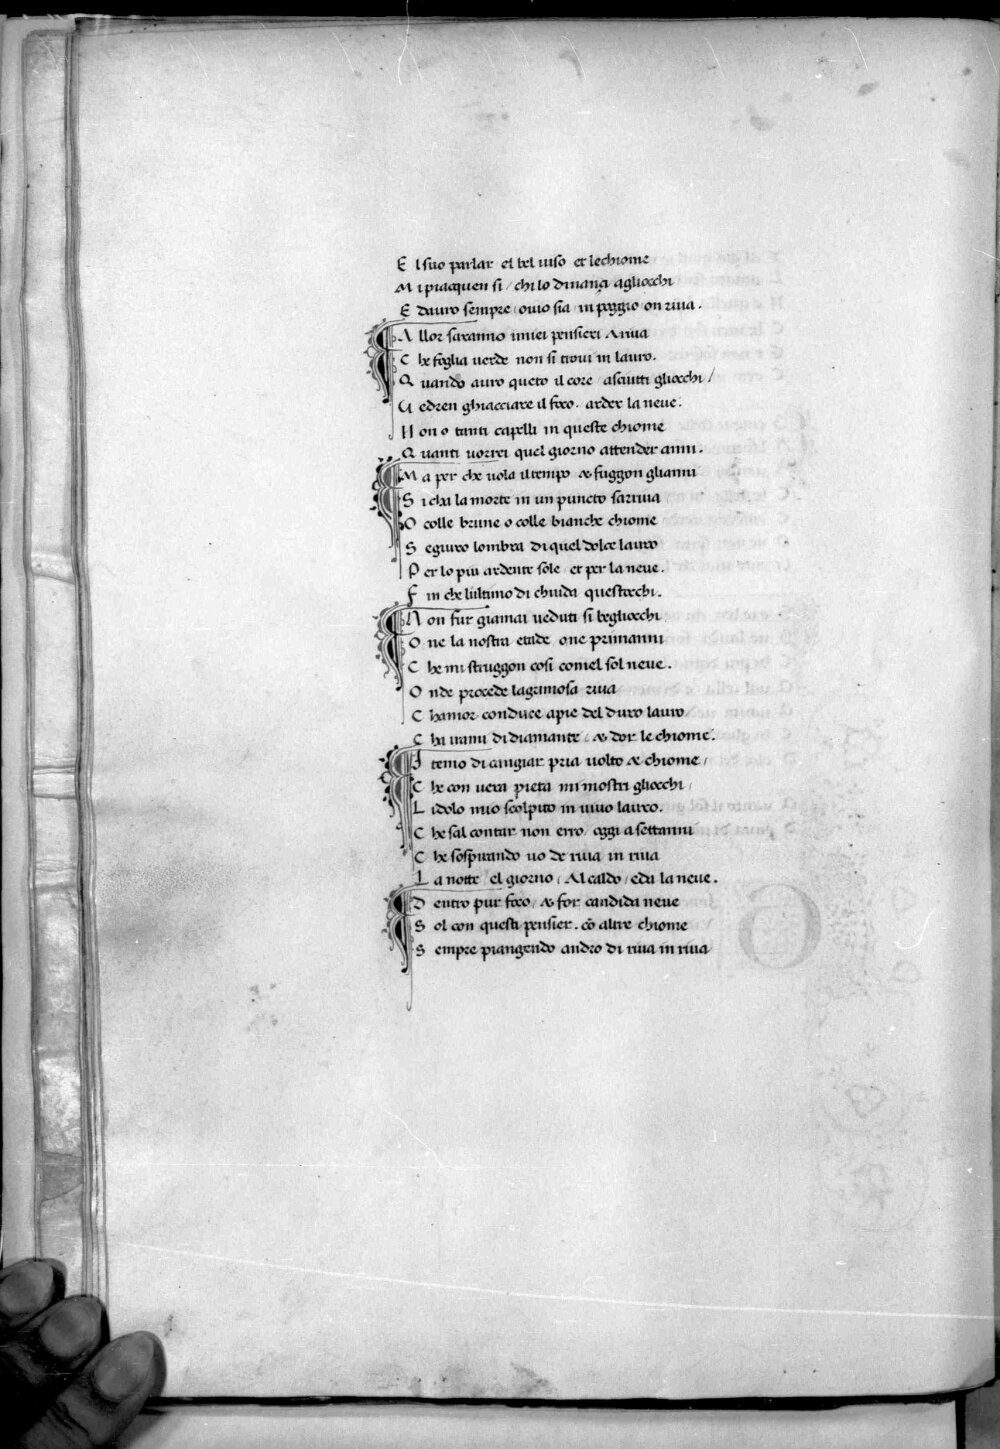 E l suo parlar el bel uiso et lechiome
M i piacquen si / chi lo dinanzi agliocchi
E dauro sempre / ouio sia / in poggio on riua .
A llor saranno imiei pensieri a riua
C he foglia uerde non si troui in lauro .
Q uando auro queto il core / asciutti gliocchi /
U edren ghiacciare il foco . arder la neue .
N on o tanti capelli in queste chiome
Q uanti uorrei quel giorno attender anni .
M a per che uola il tempo & fuggon glianni
S i cha la morte in un puncto sarriua
O colle brune o colle bianche chiome
S eguiro lombra di quel dolce lauro
P er lo piu ardente sole / et per la neue .
F in che lultimo di chiuda questocchi .
N on fur giamai ueduti si begliocchi
O ne la nostra etade one primanni
C he mi struggon cosi comel sol neue .
O nde procede lagrimosa riua
C hamor conduce apie del duro lauro
C hi irami di diamante / & dor le chiome .
I temo di cangiar pria uolto & chiome /
C he con uera pieta mi mostri gliocchi /
L idolo mio scolpito in uiuo lauro .
C he sal contar non erro / oggi a settanni
C he sospirando uo de riua in riua
L a notte / el giorno / Al caldo / eda la neue .
D entro pur foco / & for candida neue
S ol con questi pensier . cō altre chiome
S empre piangendo andro di riua in riua